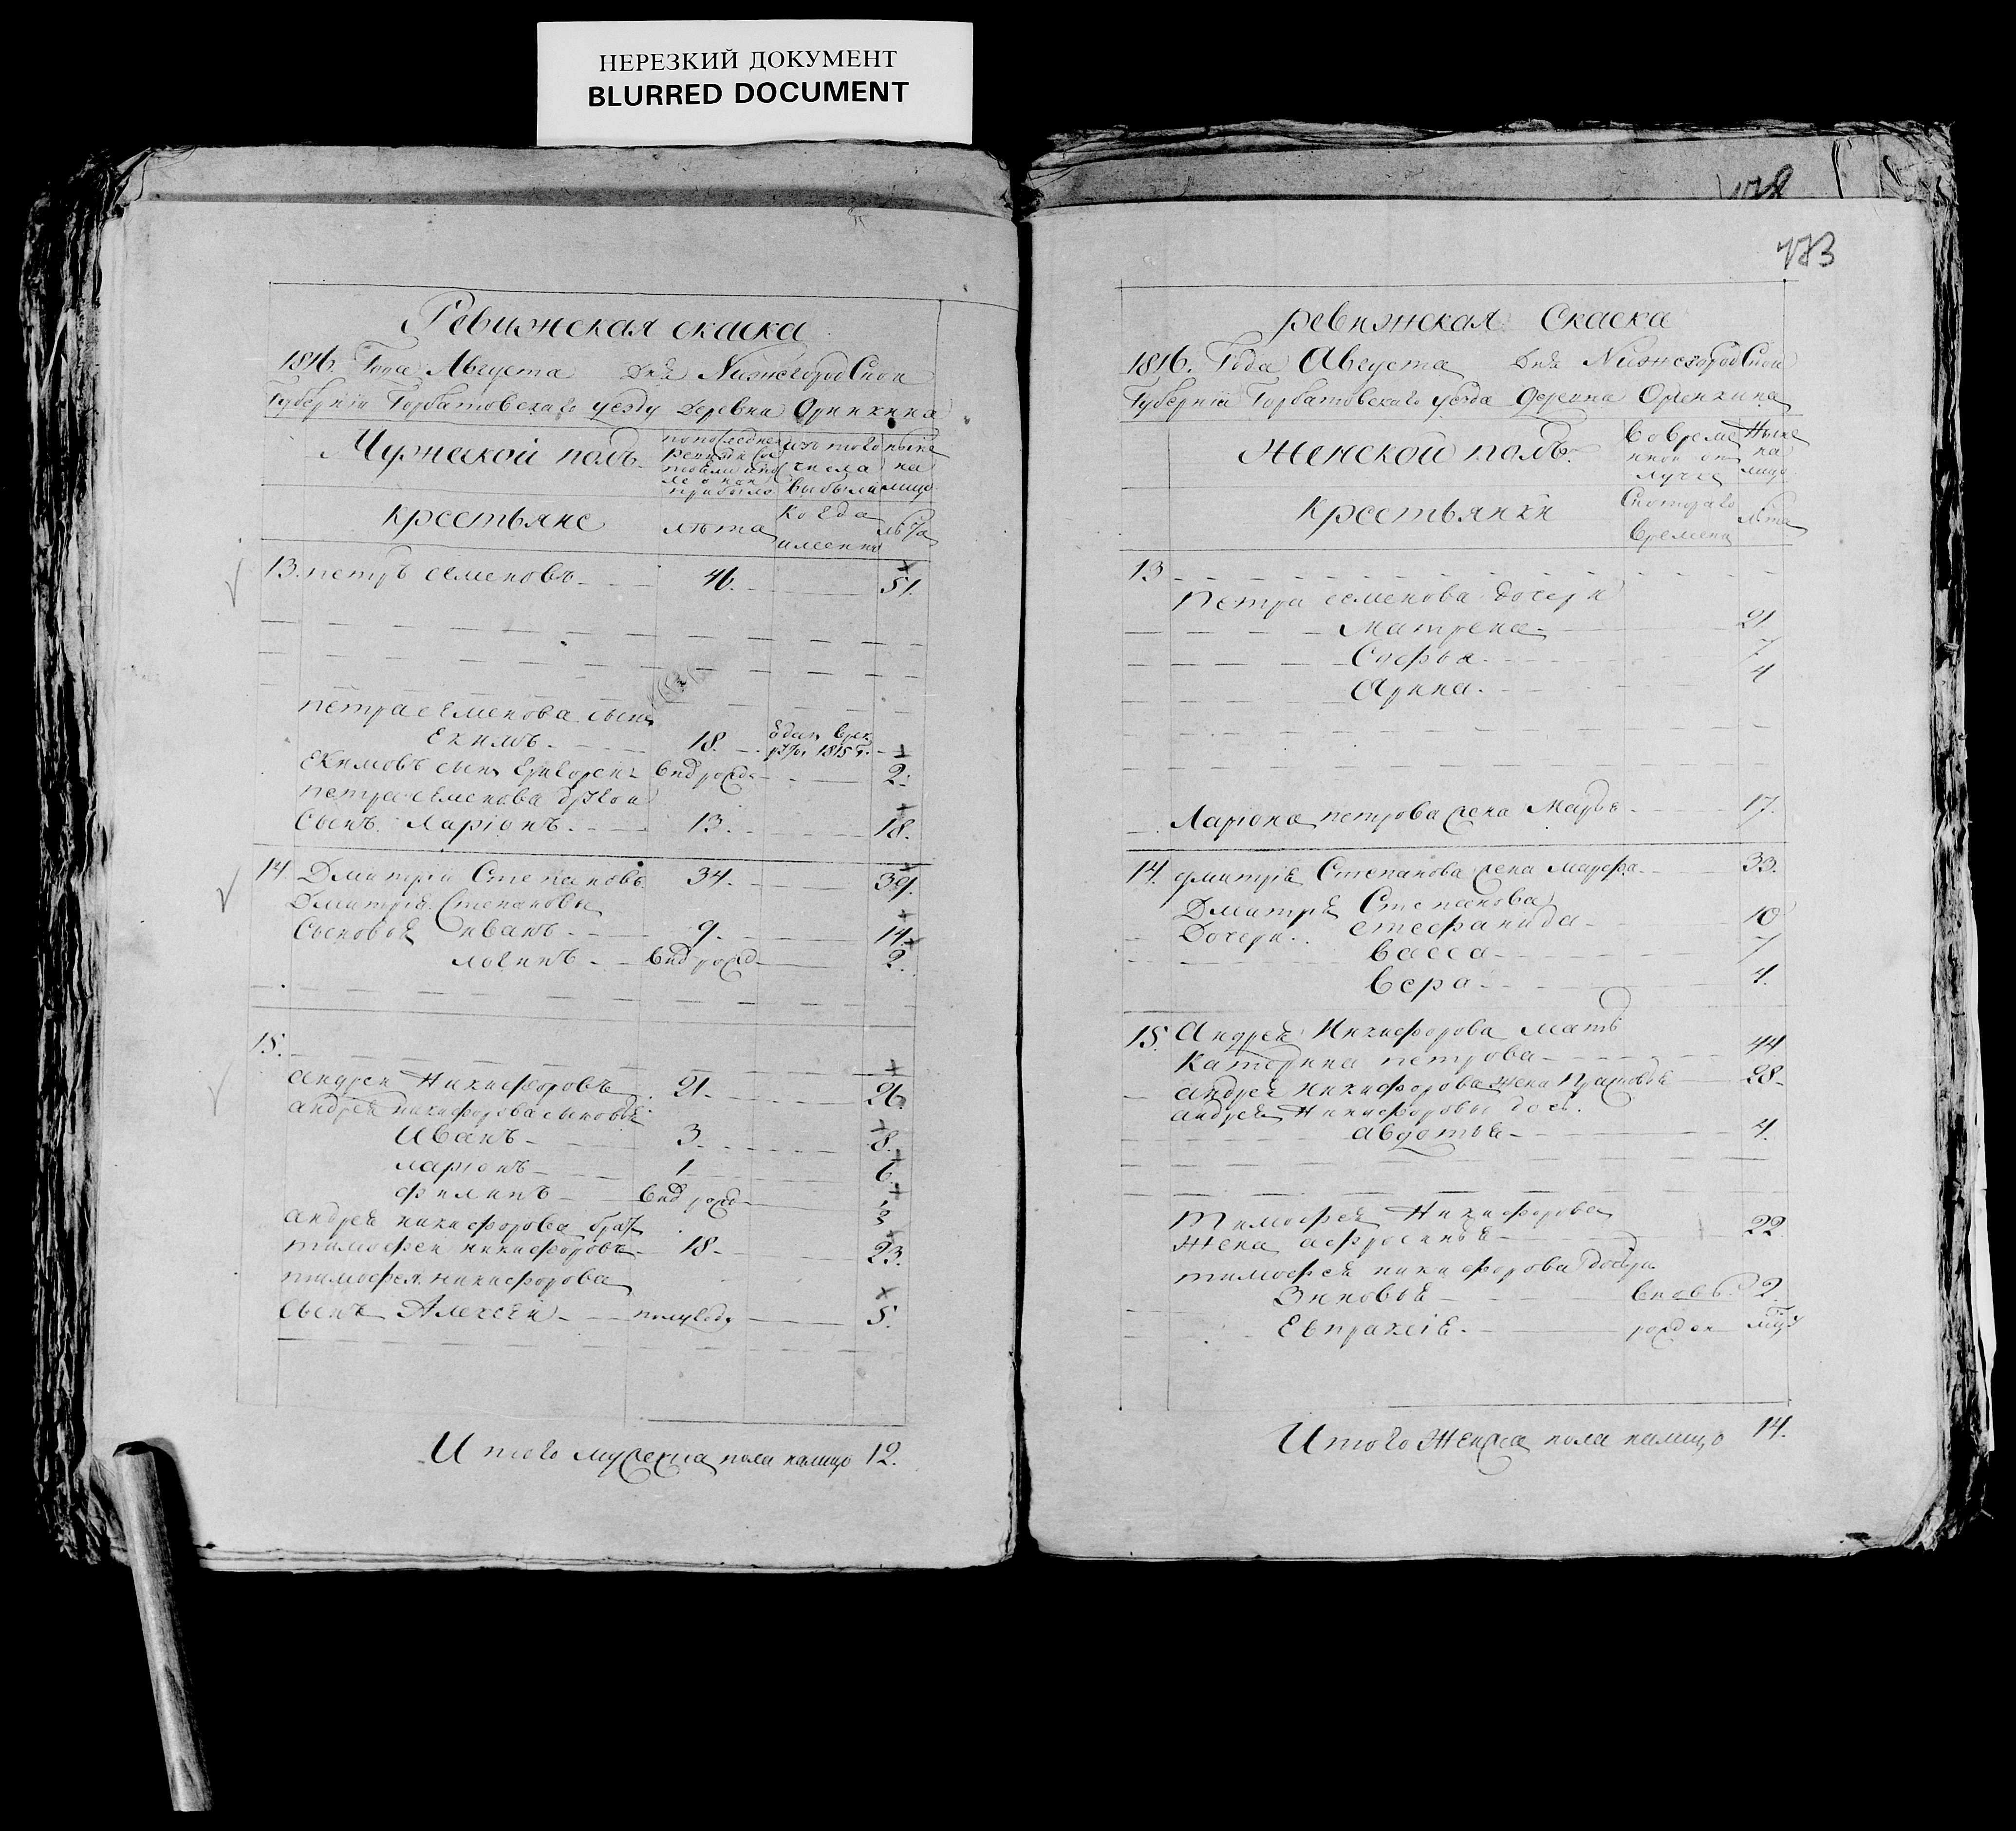 НЕРЕЗКИЙ ДОКУМЕНТ
BLURRED DOCUMENT
Ревижская скаска
1816. Года Августа Дня Нижегородской
Губернiи Горбатовскаго уезду деревна Оринкина
Мужеской полъ
изъ того числа выбыли
ныне на лицо
Крестьяне
лета
когда именно
лета
13. петръ семеновъ 46. 51.
петра семенова сынъ
Екимъ 18. 1815
Екимовъ сынъ Григорей 2.
петра семенова другой
сынъ Ларiонъ 13. 18.
14 Дмитрiй Степановъ 34. 39.
Дмитрiя Степанова
Сыновья иванъ 9. 14.
логинъ 2.
15.
андрей Никифоровъ 21. 26.
андрея никифорова сыновья
Иванъ 3. 8.
ларiонъ 1. 6.
филипъ 3
андрея никифорова братъ
тимофей никифоровъ 18. 23.
тимофея никифорова
сынъ Алексей полугоду 5.
Итого мужеска пола налицо 12.
473
ревижская Скаска
1816. Года Августа Дня Нижегородской
Губернiи Горбатовскаго уезда деревна Оренкина
Женской полъ
во временной отлучке
Ныне на лицо
Крестьянки
С котораго времени
лета
13
Петра семенова дочери
Матрена 21
Софья 7
Арина 4
Лариона петрова жена Марья 17.
14. дмитрiя Степанова жена марфа 33.
Дмитрiя Степанова
Дочери стефанида 10
васса 7
вера 4.
15. Андрея Никифорова мать
Катерина петрова 44
андрея никифорова жена Прасковья 28
андрея Никифоровы дочь
авдотья 4.
Тимофея Никифорова
Жена афросинья 22
тимофея никифорова дочери
Зиновья вновь 2.
Евпраксiя рожден
Итого Женска пола налицо 14.